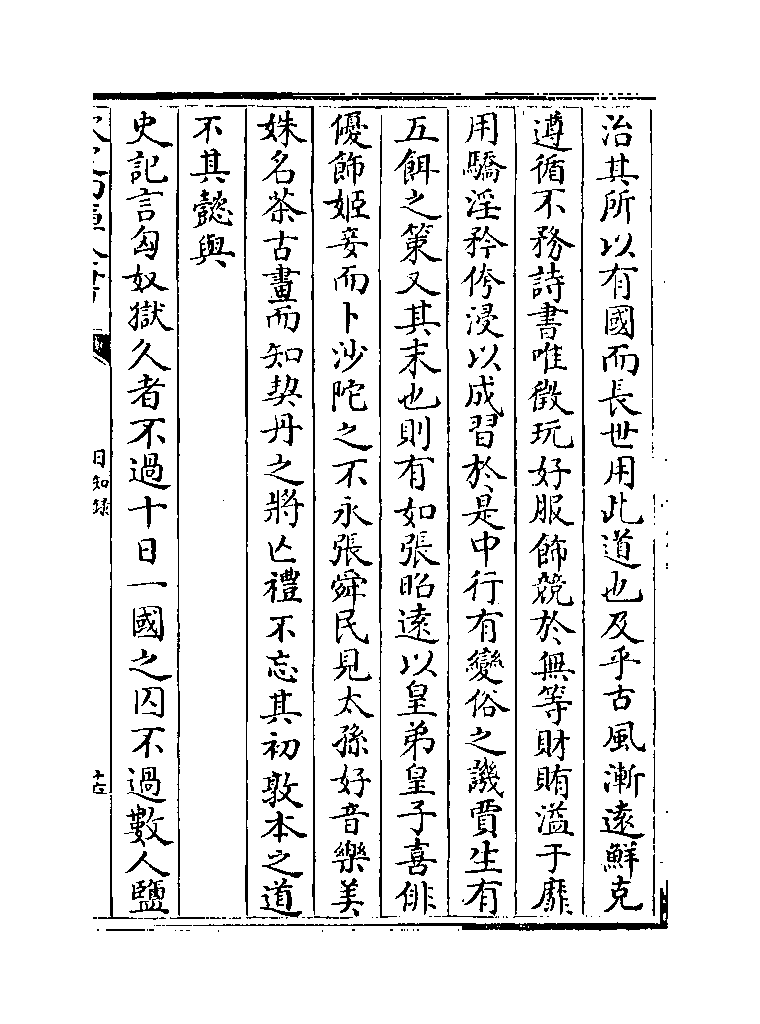 治其所以有國而長世用此道也及乎古風漸逺鮮克
遵循不務詩書唯徵玩好服飾競於無等財賄溢于靡
用驕淫矜侉浸以成習於是中行有變俗之譏賈生有
五餌之策又其末也則有如張昭逺以皇弟皇子喜俳
優飾姬妾而卜沙陀之不永張舜民見太孫好音樂美
姝名茶古畫而知契丹之將亡禮不忘其初敦本之道
不其懿與
史記言匈奴獄久者不過十日一國之囚不過數人鹽
日知録